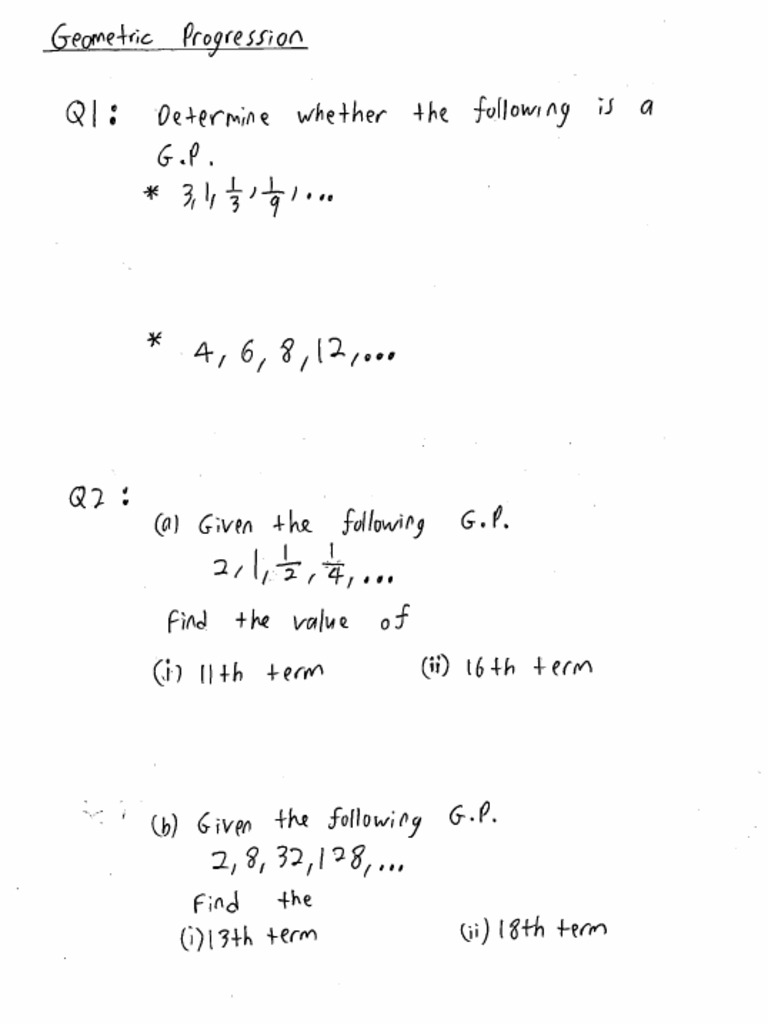 Geometric Progression
Q1: Determine whether the following is a
G.P.
* 3, 1, 1/3, 1/9, ...
* 4, 6, 8, 12, ...
Q2:
(a) Given the following G.P.
2, 1, 1/2, 1/4, ...
Find the value of
(i) 11th term (ii) 16th term
(b) Given the following G.P.
2, 8, 32, 128, ...
Find the
(i) 13th term (ii) 18th term